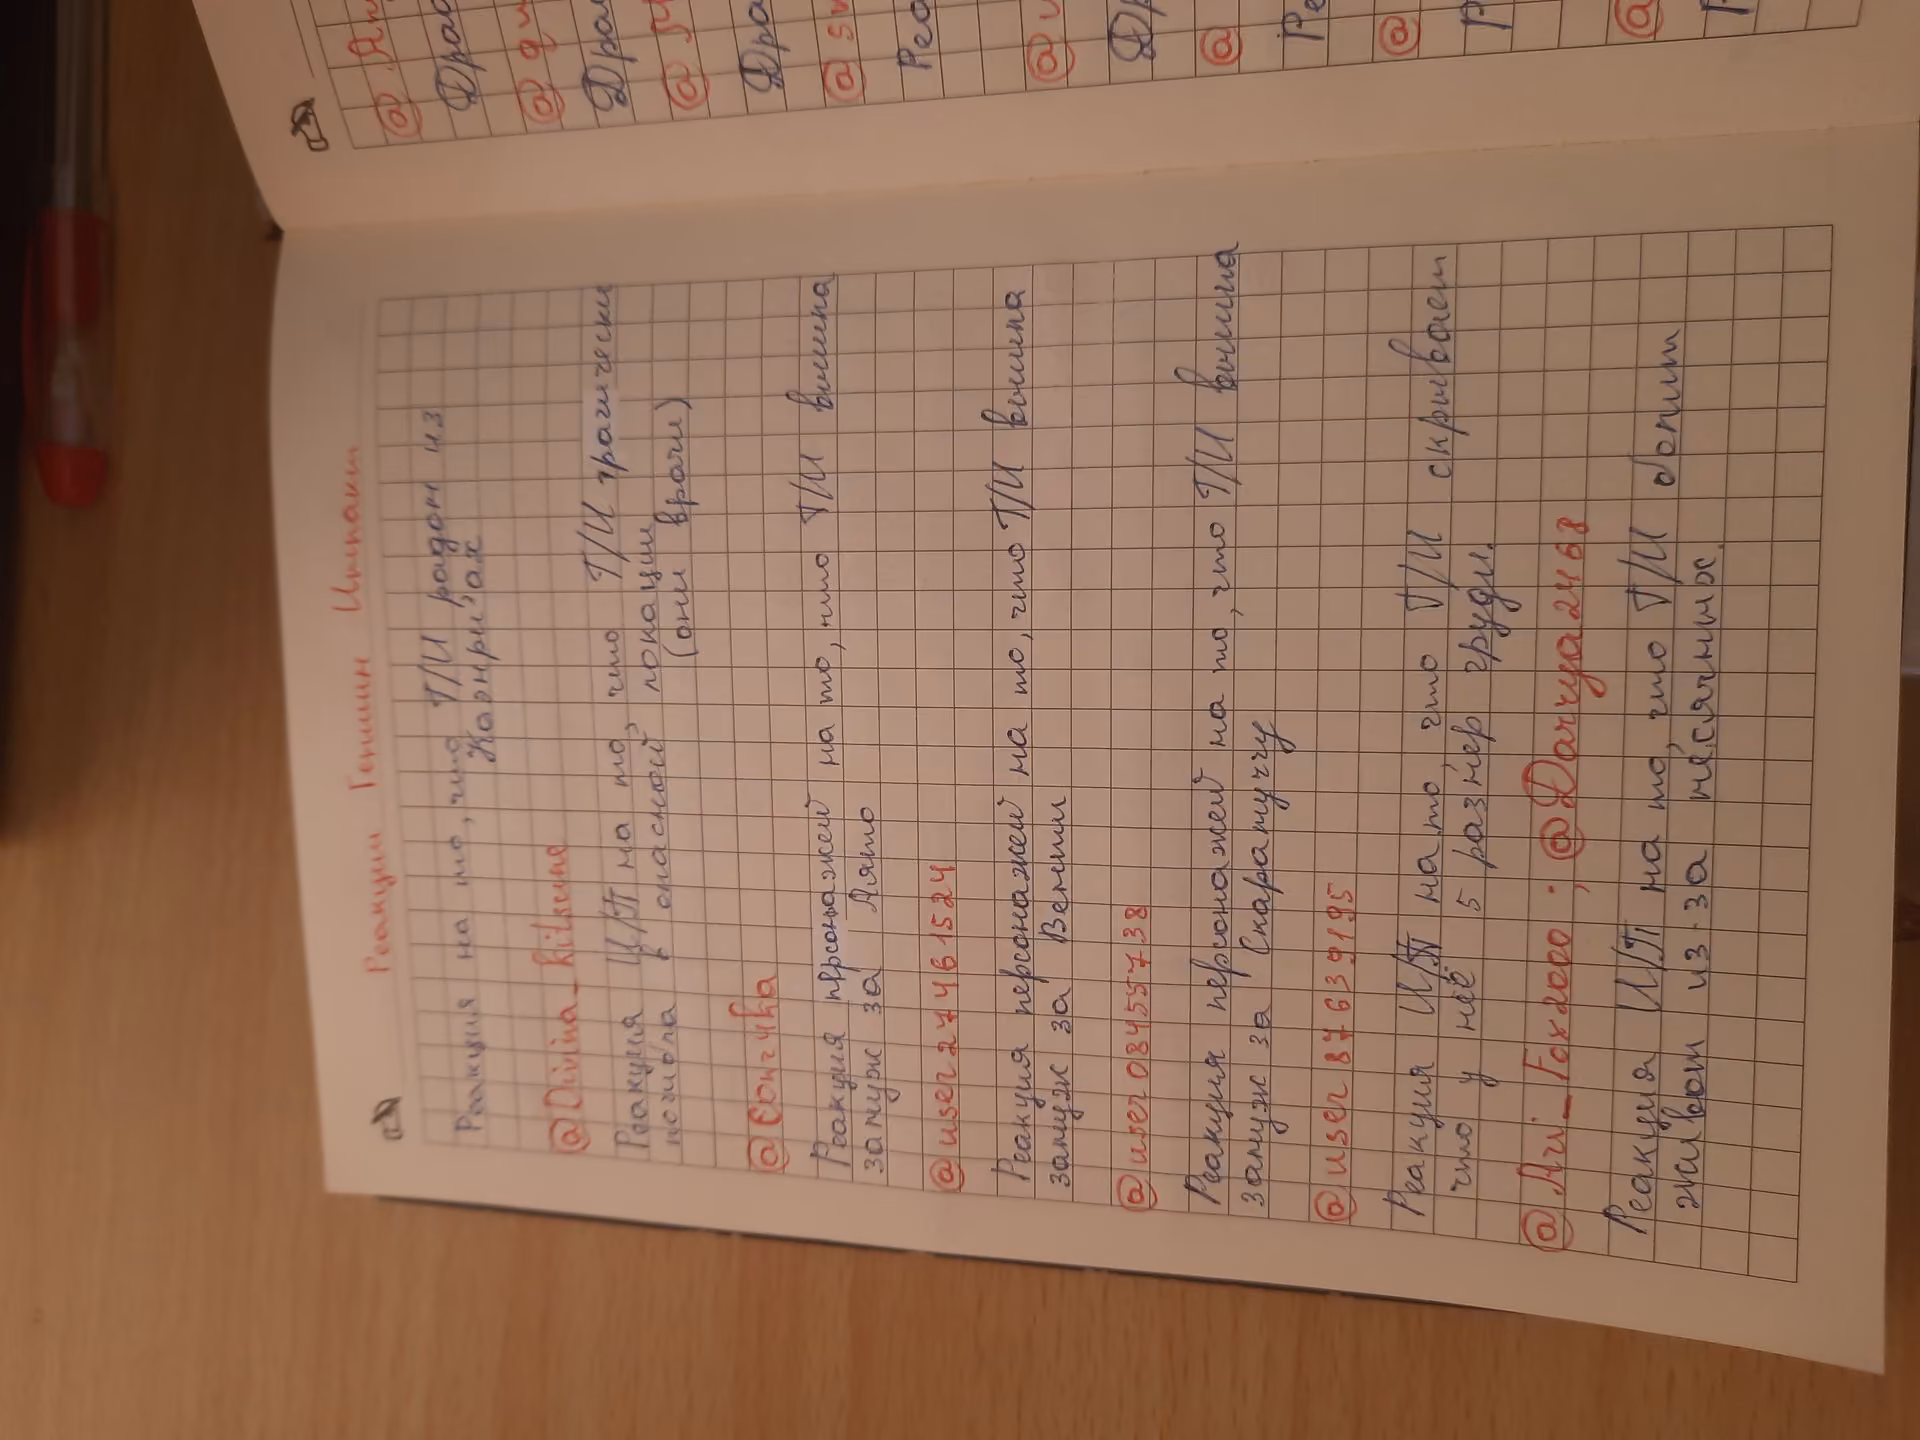 Реакции Геншин Импакт
Реакция на то, что Т/И родом из
Каэнри'ах
@Divina_kitsune
Реакция И/П на то, что Т/И трагически
погибла в опасной локации
(они врачи)
Реакция персонажей на то, что Т/И вышла
замуж за Аято
@user27461524
Реакция персонажей на то, что Т/И вышла
замуж за Венти
@user08455738
Реакция персонажей на то, что Т/И вышла
замуж за Скарамуччу
@user87639195
Реакция И/П на то, что Т/И скрывает
что у неё 5 размер груди.
@Ari_Fox2000; @Darrya2468
Реакция И/П на то, что Т/И болит
живот из-за месячных.
@
Драа
@
Драа
@
Дра
@
Реа
@
Др
@
Ре
@
Р
@